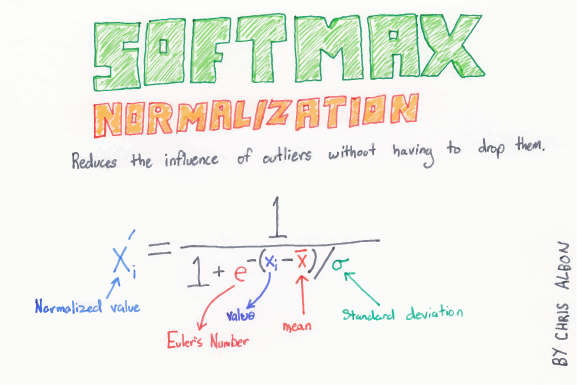 SOFTMAX
NORMALIZATION
Reduces the influence of outliers without having to drop them.
xᵢ′ = 1 / (1 + e^(−(xᵢ − x̄)/σ))
Normalized value
value
mean
Standard deviation
Euler's Number
BY CHRIS ALBON